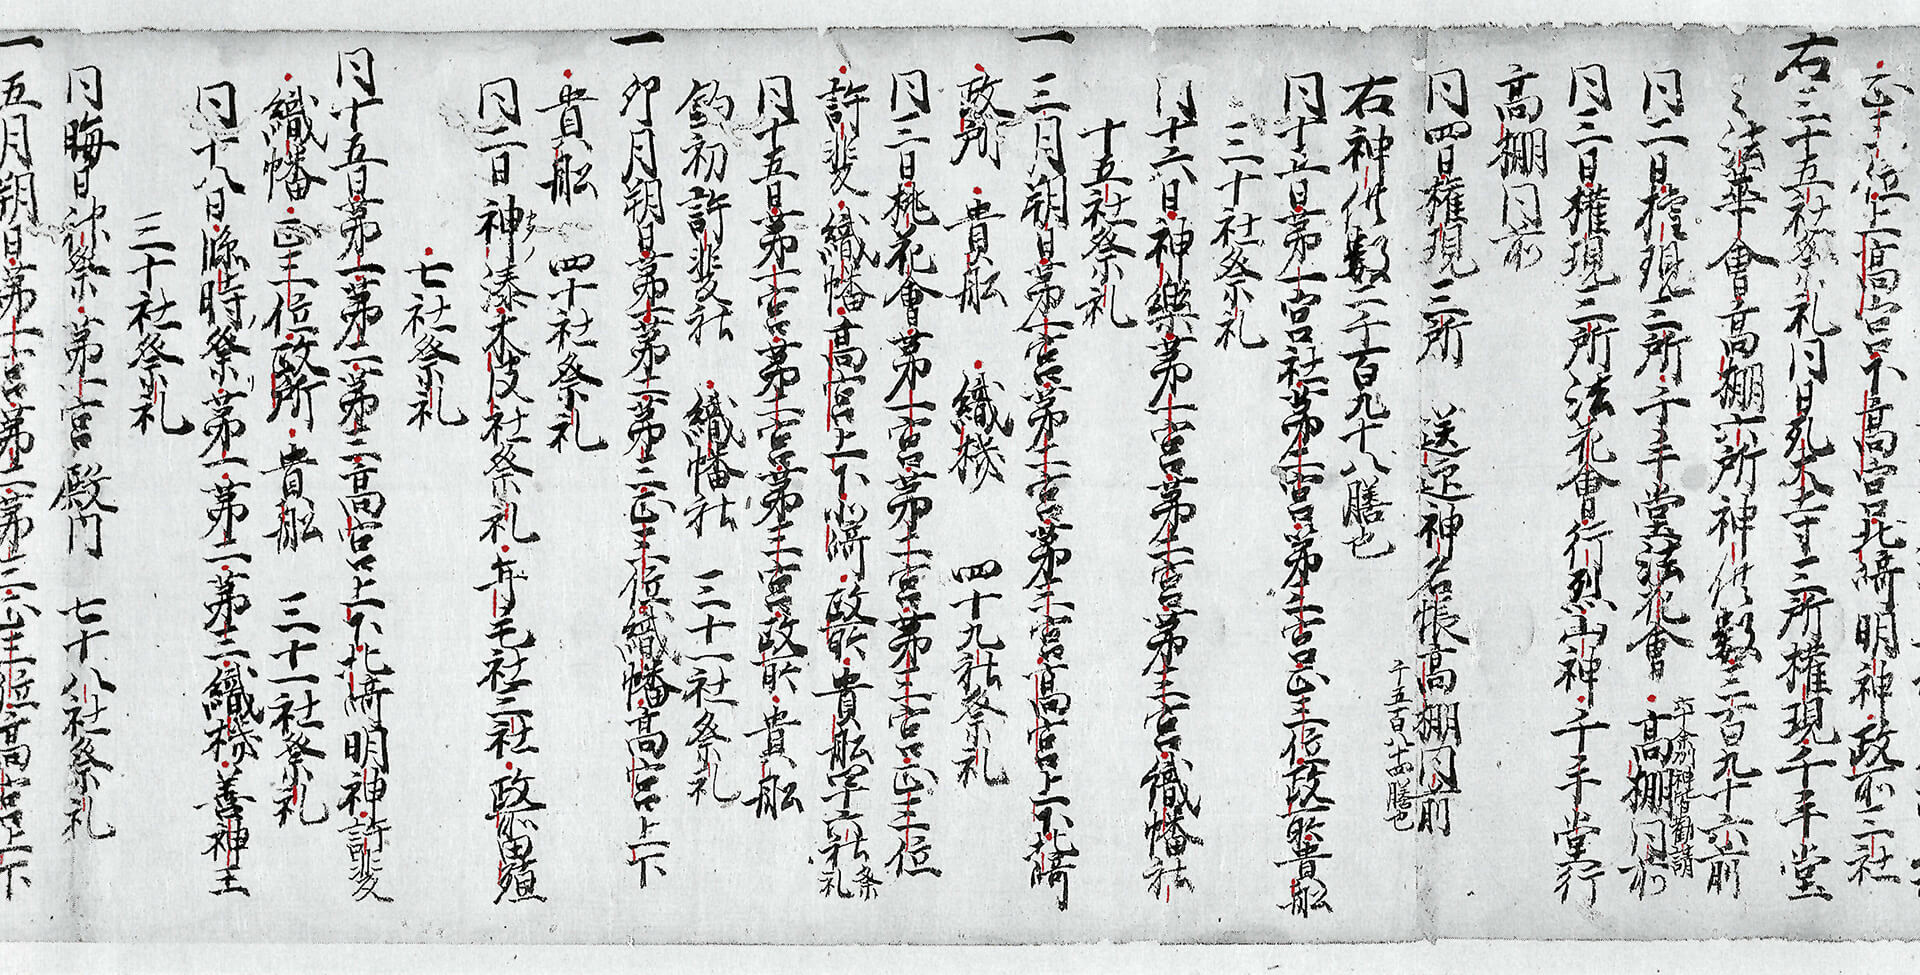 正三位上高宮下高宮北崎明神政所二社
右三十五社祭礼同日瓦木土寸三所権現千手堂
之法華會高棚六所神供数三百九十六前
同二日権現三所千手堂法花會高棚同前
年俞神皆勧請
同三日権現三所法花會行烈山神千手堂行
高棚同前
同四日権現三所 送迎神名帳高棚同前
千五百八十四膳也
右神供数二千百九十八膳也
同十五日第一宮社第二宮第三宮正三位政所貴船
三十社祭礼
同十六日神樂第一宮第二宮第三宮織幡社
十五社祭礼
一三月朔日第一宮第二宮第三宮高宮上下北崎
政所 貴船 織幡 四十九社祭礼
同三日桃花會第一宮第二宮第三宮正三位
許斐織幡高宮上下北崎政所貴船四十六社祭礼
同十五日第一宮第二宮第三宮政所貴船
釣初許斐社 織幡社 三十一社祭礼
一卯月朔日第一第二第三正三位織幡高宮上下
貴船 四十社祭礼
同二日神湊木皮社祭礼年毛社三社政所田殖
七社祭礼
同十五日第一第二第三高宮上下北崎明神許斐
織幡正三位政所貴船 三十一社祭礼
同十八日臨時祭第一第二第三織幡善神王
三十社祭礼
同晦日神祭第一宮殿門 七十八社祭礼
一五月朔日第一宮第二第三正三位高宮上下